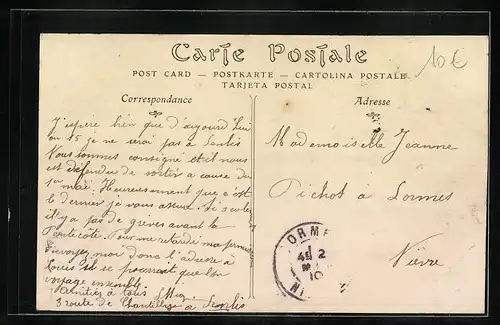 Carte Postale
10 €
POST CARD — POSTKARTE — CARTOLINA POSTALE
TARJETA POSTAL
Correspondance
J'espère bien que d'aujourd'hui
en 15 je ne serai pas à Senlis
Nous sommes consigné et il nous
est défendu de sortir a cause du
1er mai. Heureusement que c'est
le dernier je vous assure. Si seulement
il y a pas de grèves avant la
Pentecôte. Pour me retardé ma
Envoyez moi donc l'adresse à
Louis il se pourrait que l'on
voyage ensemble
Amitiés à tous
3 route de Chantilly à Senlis
Adresse
Mademoiselle Jeanne
Pichot à Lormes
Nièvre
ORME